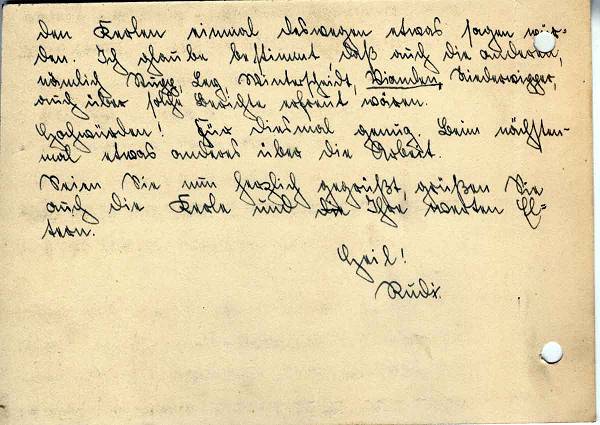 den Kerlen einmal deswegen etwas sagen wür-
den. Ich glaube bestimmt, daß auch die anderen,
nämlich Rupp, Ley, Winterscheidt, Vianden, Niederwipper,
auch über solche Berichte erfreut wären.
Hochwürden! Für diesmal genug. Beim nächsten-
mal etwas anderes über die Arbeit.
Seien Sie nun herzlich gegrüßt, grüßen Sie
auch die Kerle und die Ihre werten El-
tern.
Heil!
Rudi.